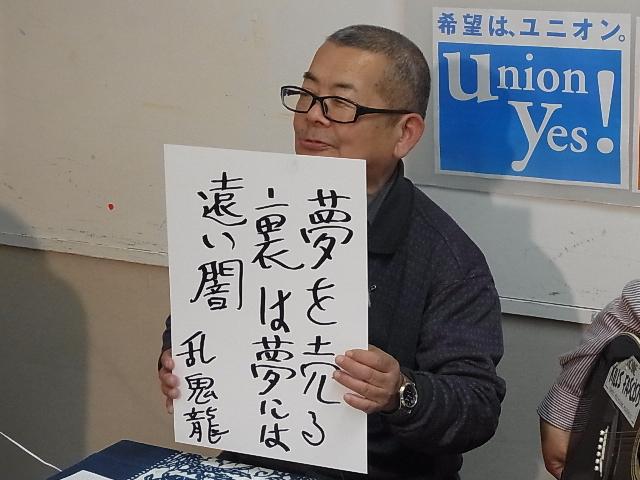 希望は、ユニオン。
union
yes!
夢を売る
裏は夢には
遠い闇
乱鬼龍